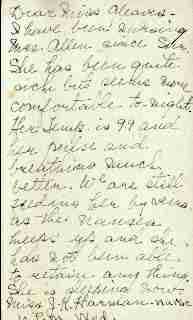 Dear Miss Cleaves -
I have been nursing
Miss Allen since Sun.
She has been quite
sick but seems more
comfortable to-night.
Her Temp is 99 and
her pulse and
breathing much
better. We are still
feeding her by
as the nausea
keeps up and she
has not been able
to retain any thing.
She is sleeping now.
Miss J. K. Harman - nurse
P.M. Wed.